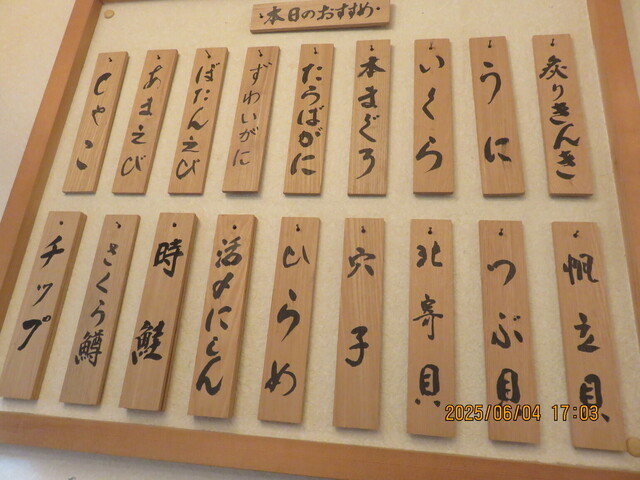 本日のおすすめ
炙りきんき
うに
いくら
本まぐろ
たらばがに
ずわいがに
ぼたんえび
あまえび
しゃこ
帆立貝
つぶ貝
北寄貝
穴子
ひらめ
活〆にしん
時鮭
さくら鱒
チップ
2025/06/04 17:03